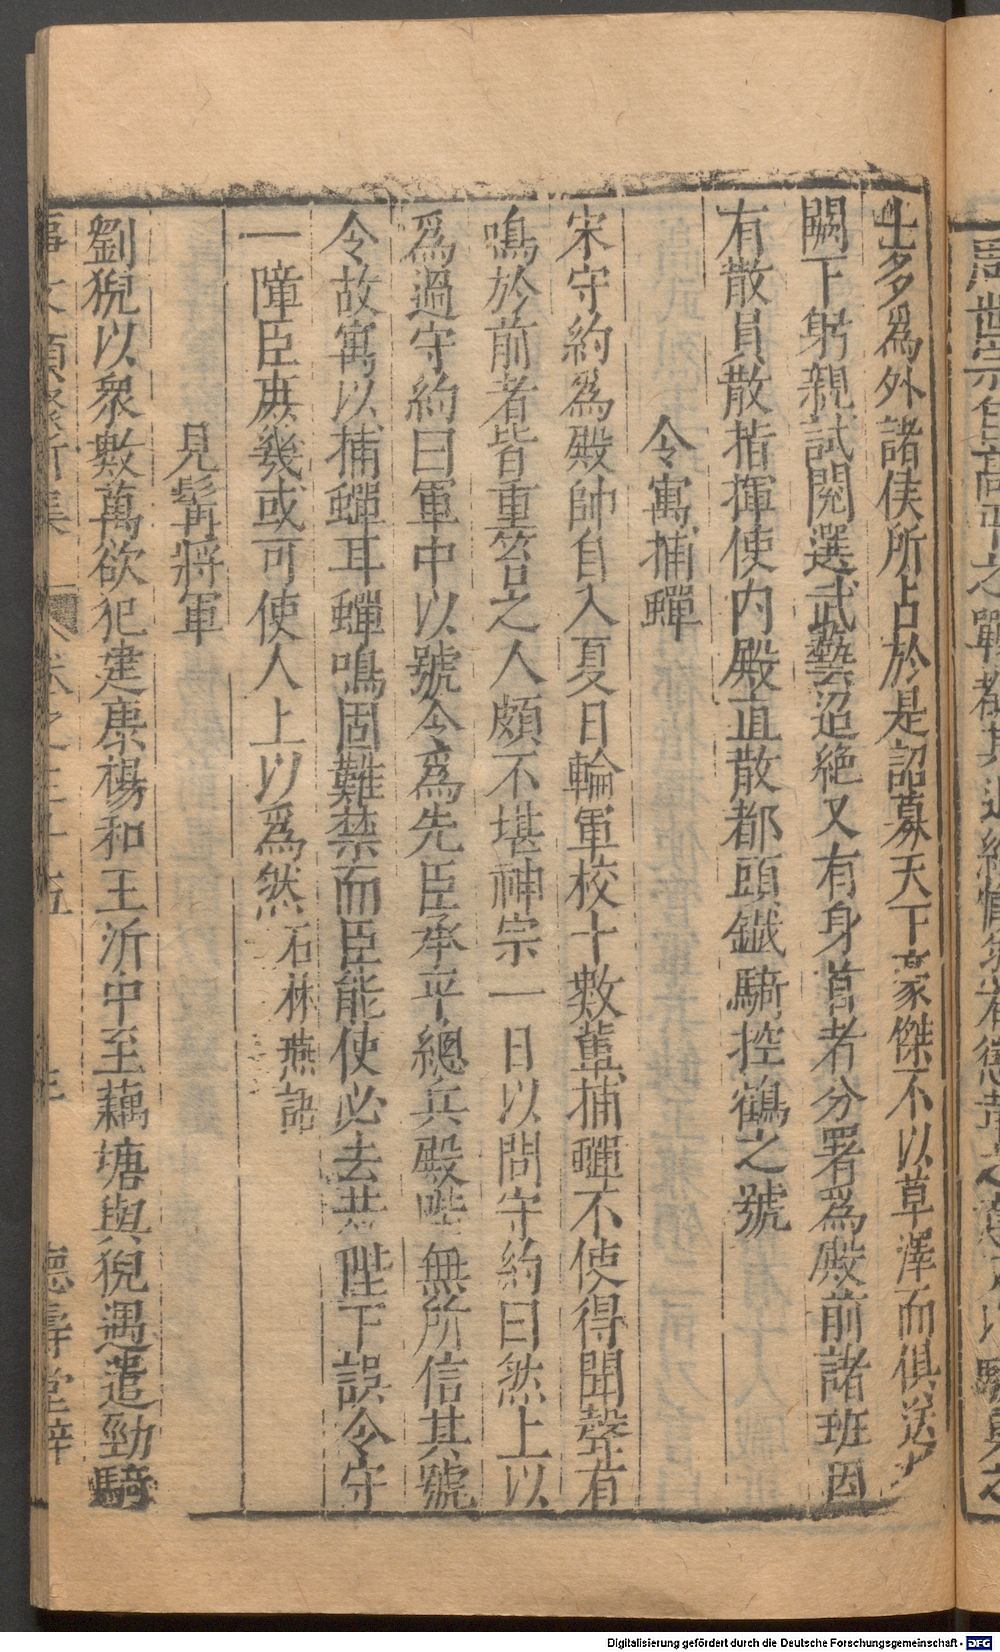 士多為外諸侯所占於是詔募天下豪傑不以草澤而俱送
闕下躬親試閱選武藝迢絶又有身首者分署為殿前諸班因
有散員散指揮使内殿直散都頭鐵騎控鶴之號
令寓捕蟬
宋守約為殿帥自入夏日輪軍校十數軰捕蟬不使得聞聲有
鳴於前者皆重笞之人頗不堪神宗一日以問守約曰然上以
為過守約曰軍中以號令為先臣承平總兵殿陛無所信其號
令故寓以捕蟬耳蟬鳴固難禁而臣能使必去若陛下誤令守
一障臣庶幾或可使人上以為然石林燕語
見髯將軍
劉猊以衆數萬欲犯建康楊和王沂中至藕塘與猊遇遣勁騎
事文類聚新集 卷之三十五 德壽堂梓
Digitalisierung gefördert durch die Deutsche Forschungsgemeinschaft - DFG